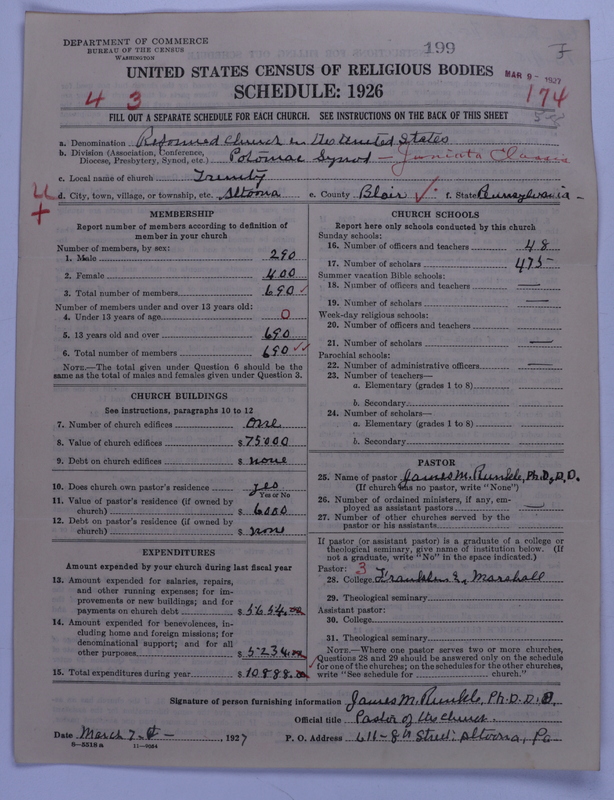 DEPARTMENT OF COMMERCE
BUREAU OF THE CENSUS
WASHINGTON
199
UNITED STATES CENSUS OF RELIGIOUS BODIES
MAR 9 - 1927
SCHEDULE: 1926
4 3
174
FILL OUT A SEPARATE SCHEDULE FOR EACH CHURCH. SEE INSTRUCTIONS ON THE BACK OF THIS SHEET
a. Denomination Reformed Church in the United States
b. Division (Association, Conference, Diocese, Presbytery, Synod, etc.) Potomac Synod - Juniata Classis
c. Local name of church Trinity
d. City, town, village, or township, etc. Altoona e. County Blair f. State Pennsylvania
MEMBERSHIP
Report number of members according to definition of
member in your church
Number of members, by sex:
1. Male 290
2. Female 400
3. Total number of members 690
Number of members under and over 13 years old:
4. Under 13 years of age 0
5. 13 years old and over 690
6. Total number of members 690
NOTE.—The total given under Question 6 should be
same as the total of males and females given under Question 3.
CHURCH BUILDINGS
See instructions, paragraphs 10 to 12
7. Number of church edifices One
8. Value of church edifices $ 75000
9. Debt on church edifices $ none
10. Does church own pastor's residence yes
Yes or No
11. Value of pastor's residence (if owned by
church) $ 6000
12. Debt on pastor's residence (if owned by
church) $ none
EXPENDITURES
Amount expended by your church during last fiscal year
13. Amount expended for salaries, repairs,
and other running expenses; for im-
provements or new buildings; and for
payments on church debt $ 5654.00
14. Amount expended for benevolences, in-
cluding home and foreign missions; for
denominational support; and for all
other purposes $ 5234.00
15. Total expenditures during year $ 10888.00
CHURCH SCHOOLS
Report here only schools conducted by this church
Sunday schools:
16. Number of officers and teachers 48
17. Number of scholars 475
Summer vacation Bible schools:
18. Number of officers and teachers —
19. Number of scholars —
Week-day religious schools:
20. Number of officers and teachers —
21. Number of scholars —
Parochial schools:
22. Number of administrative officers —
23. Number of teachers—
a. Elementary (grades 1 to 8)
b. Secondary
24. Number of scholars—
a. Elementary (grades 1 to 8)
b. Secondary
PASTOR
25. Name of pastor James M. Runkle, Ph.D., D.D.
(If church has no pastor, write "None")
26. Number of ordained ministers, if any, em-
ployed as assistant pastors —
27. Number of other churches served by the
pastor or his assistants
If pastor (or assistant pastor) is a graduate of a college or
theological seminary, give name of institution below. (If
not a graduate, write "No" in the space indicated.)
Pastor: 3
28. College Franklin & Marshall
29. Theological seminary
Assistant pastor:
30. College
31. Theological seminary
NOTE.—Where one pastor serves two or more churches,
Questions 28 and 29 should be answered only on the schedule
for one of the churches; on the schedules for the other churches,
write "See schedule for church."
Signature of person furnishing information James M. Runkle, Ph.D. D.D.
Official title Pastor of the church.
Date March 7 1927 P. O. Address 611 - 8th Street: Altoona, Pa
8—5518 a 11—9064